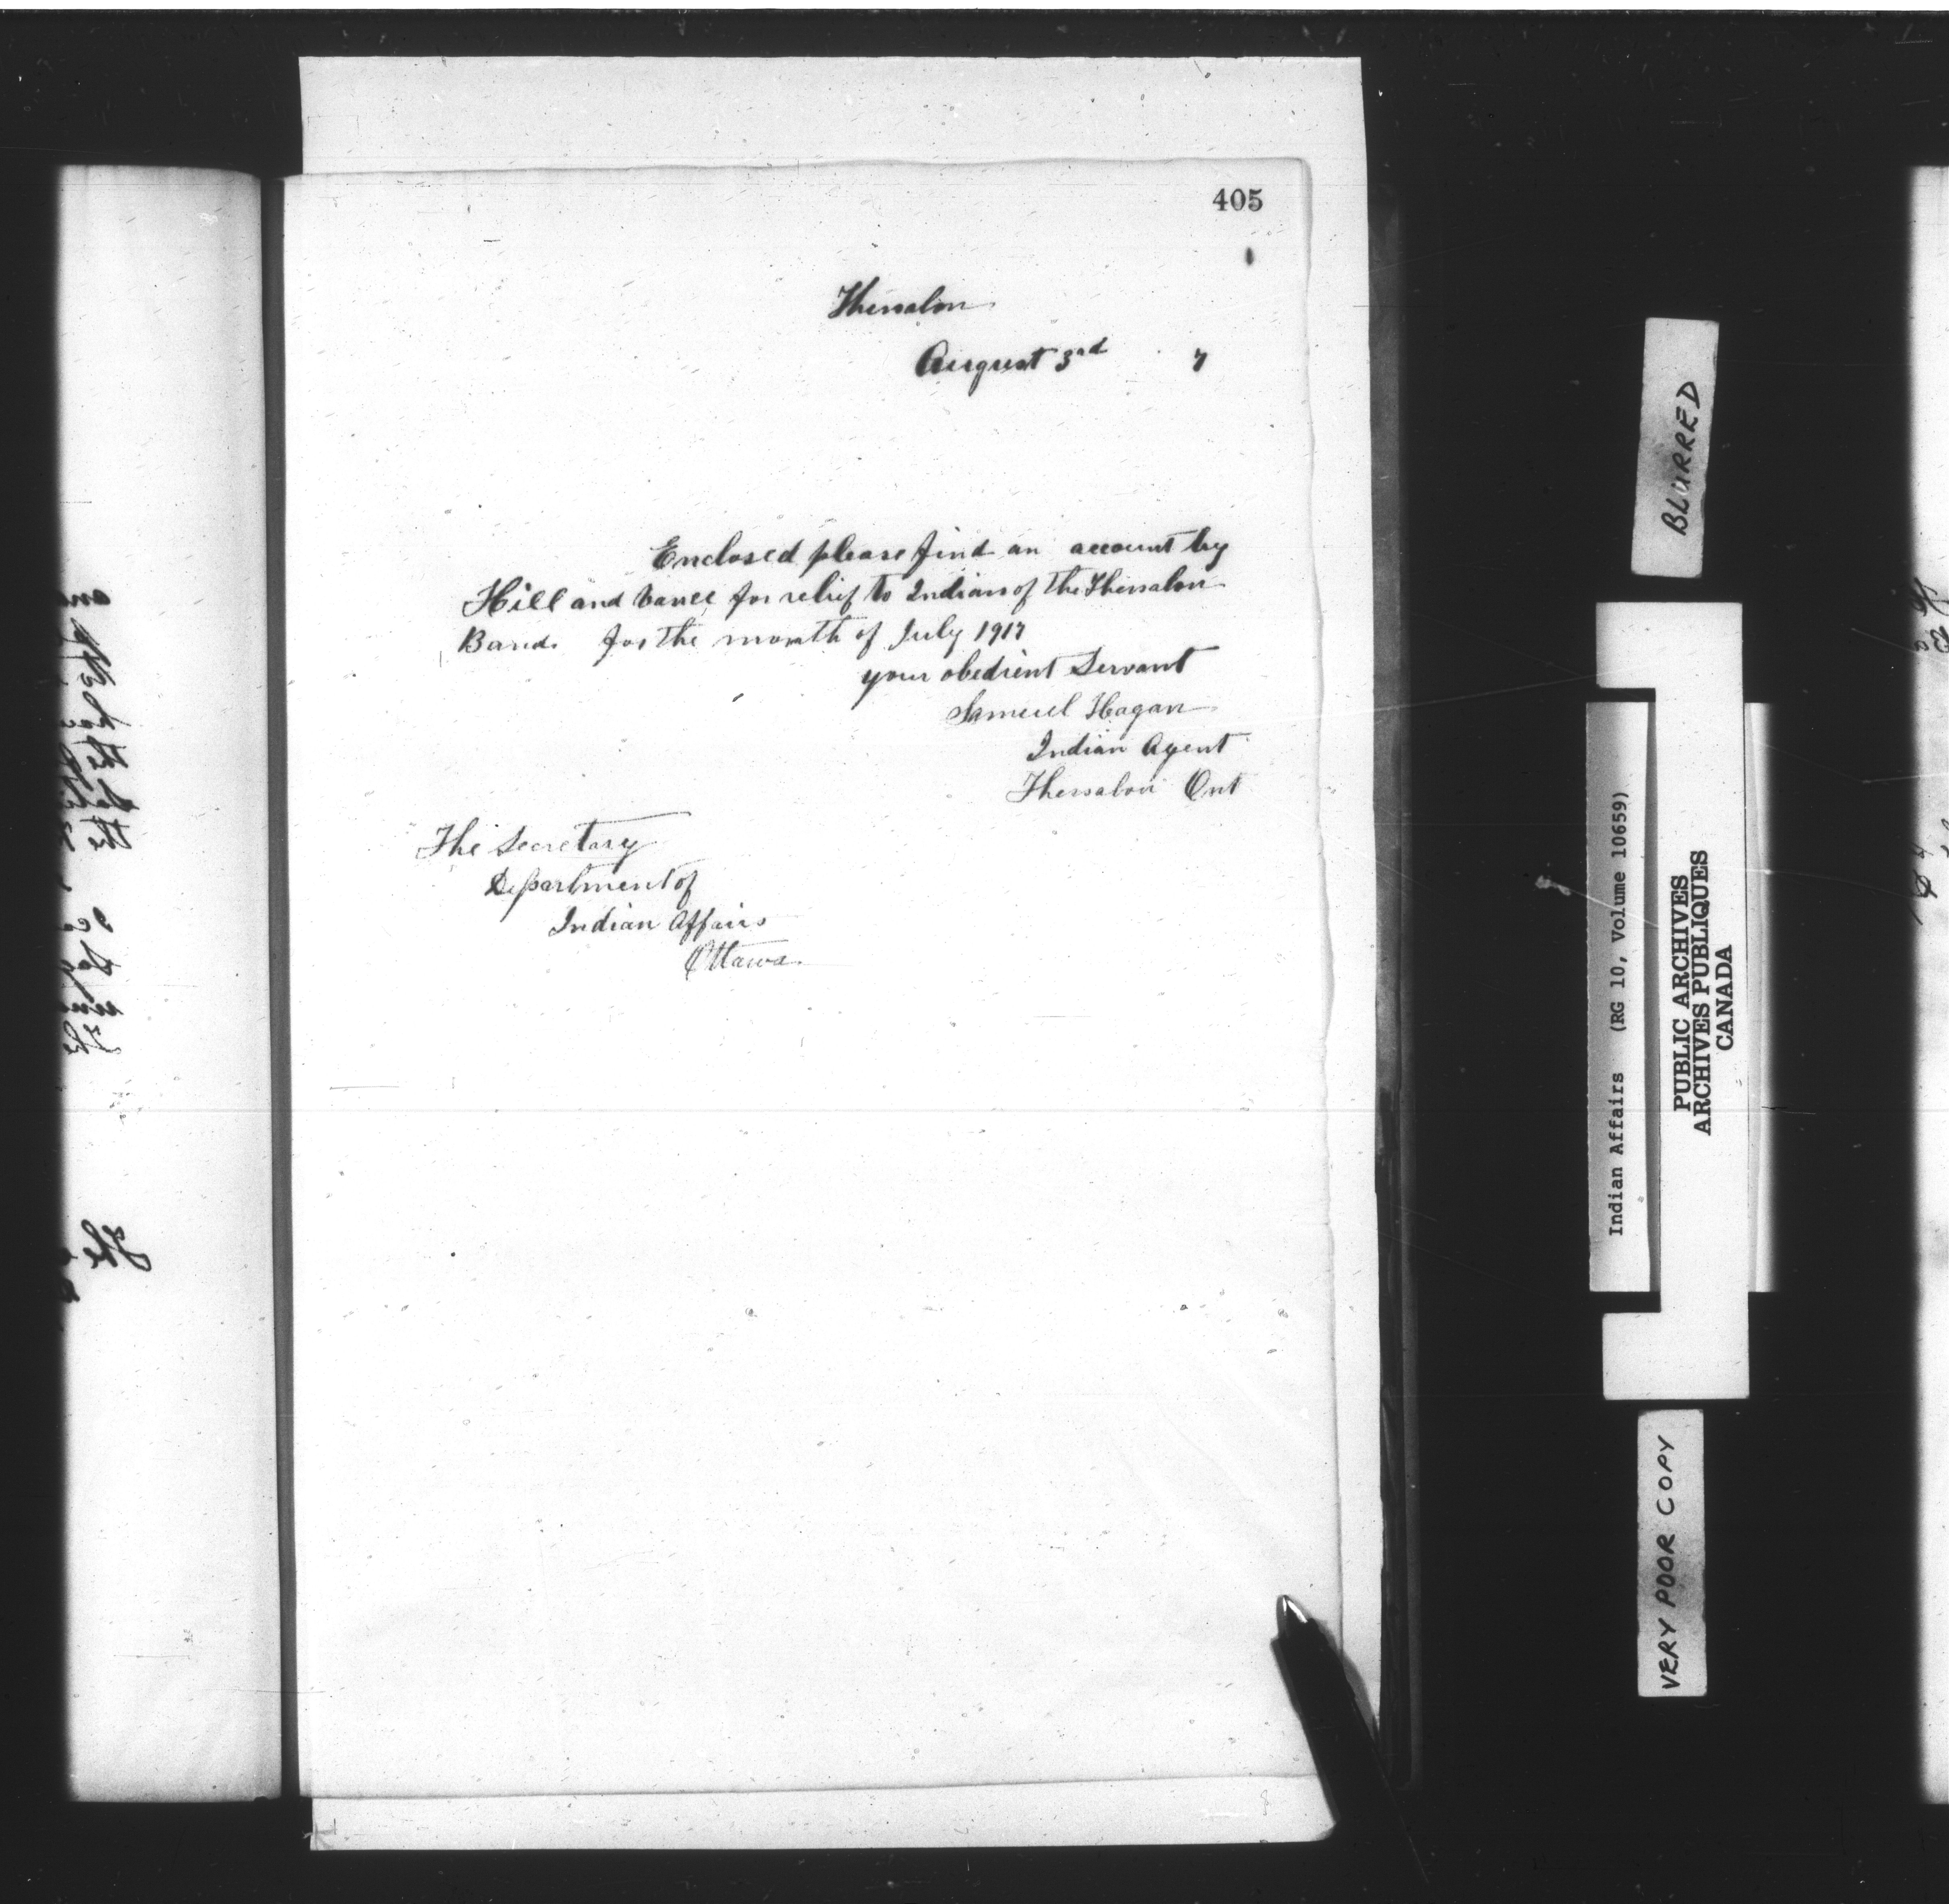 405
Thessalon
August 3rd 7
Enclosed please find an account by
Hill and Vance for relief to Indians of the Thessalon
Band. for the month of July 1917
your obedient Servant
Samuel Hagan
Indian Agent
Thessalon Ont
The Secretary
Department of
Indian Affairs
Ottawa.
BLURRED
Indian Affairs (RG 10, Volume 10659)
PUBLIC ARCHIVES
ARCHIVES PUBLIQUES
CANADA
VERY POOR COPY